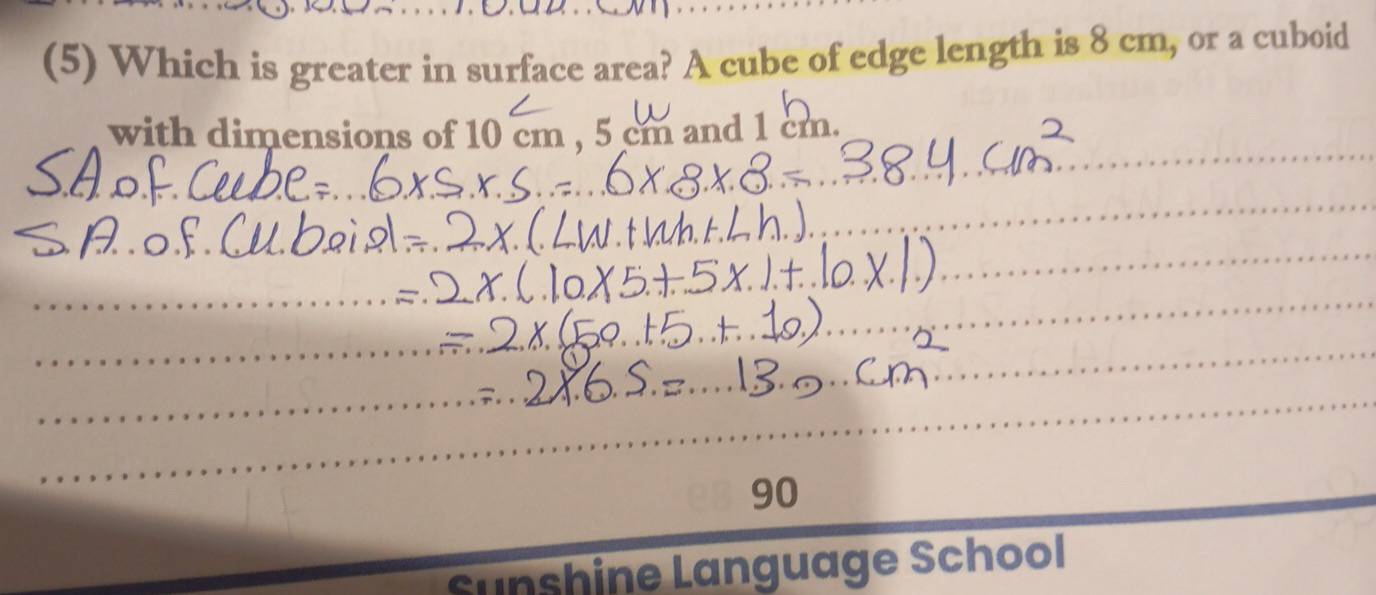 (5) Which is greater in surface area? A cube of edge length is 8 cm, or a cuboid
L w h
with dimensions of 10 cm , 5 cm and 1 cm.
S.A of Cube = 6 x S x S = 6 x 8 x 8 = 384 cm²
S.A of Cuboid = 2 x (LW + Wh + Lh)
= 2 x (10 x 5 + 5 x 1 + 10 x 1)
= 2 x (50 + 5 + 10)
= 2 x 65 = 130 cm²
90
Sunshine Language School